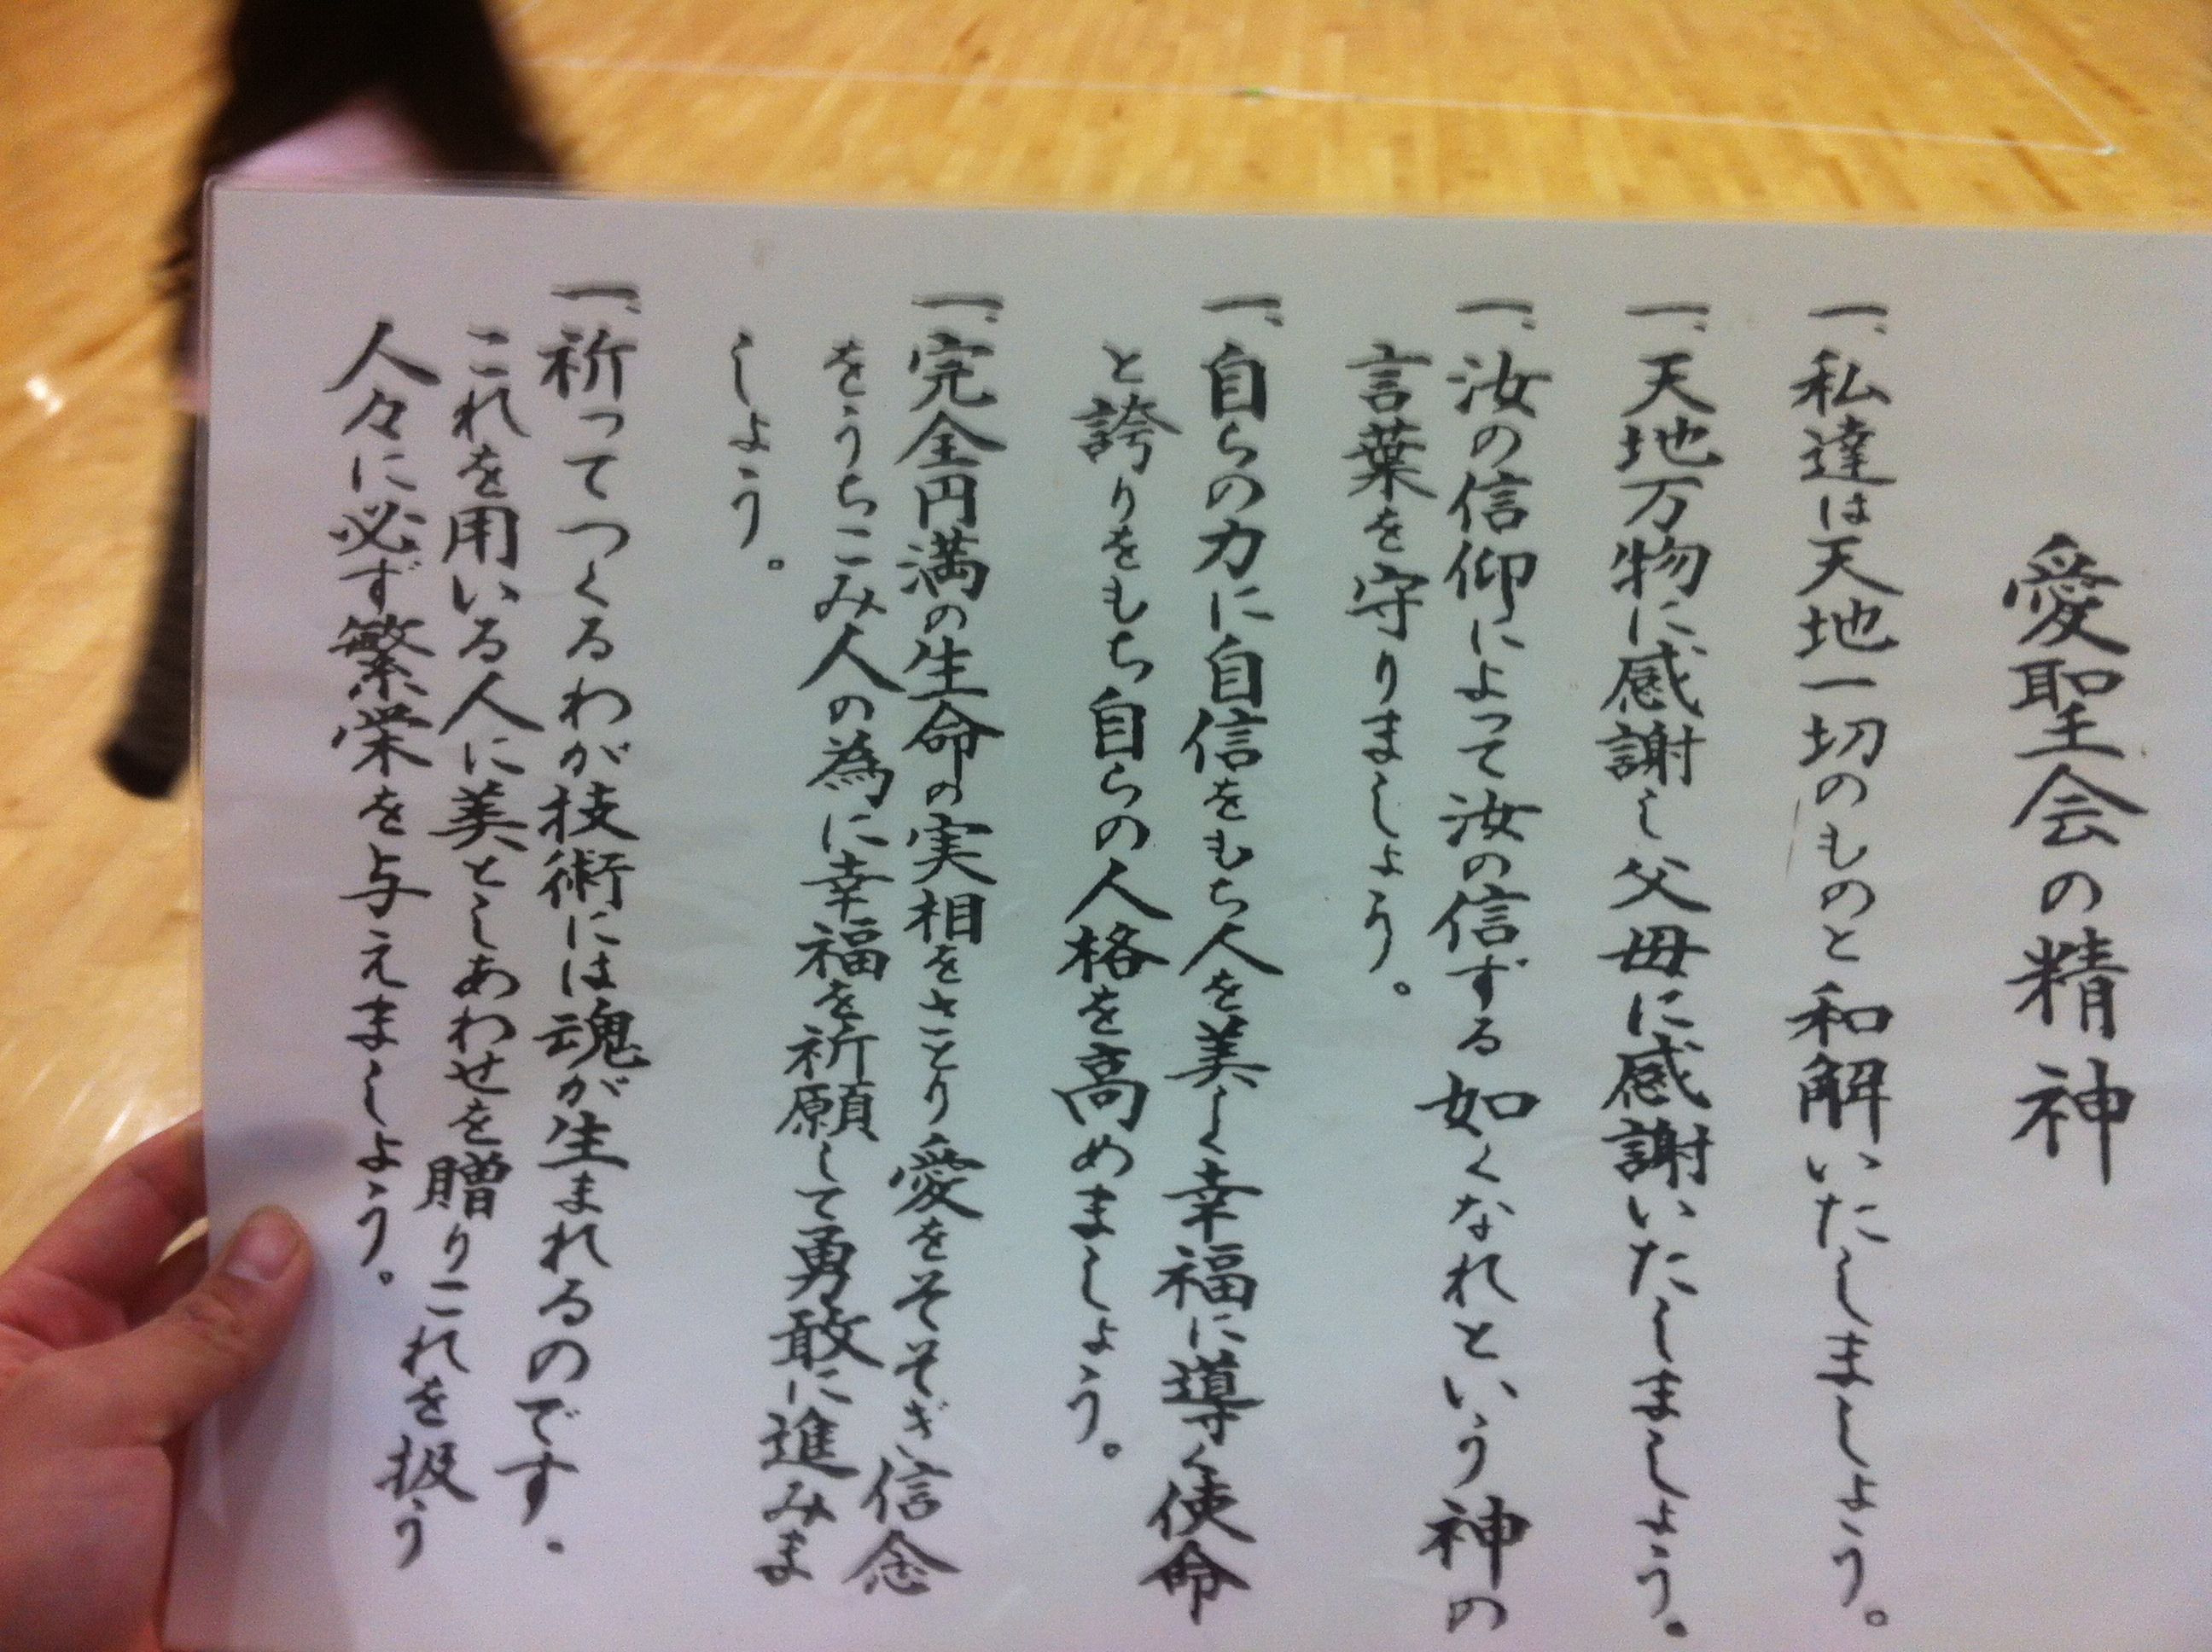 愛聖会の精神
一、私達は天地一切のものと和解いたしましょう。
一、天地万物に感謝し父母に感謝いたしましょう。
一、汝の信仰によって汝の信ずる如くなれという神の
言葉を守りましょう。
一、自らの力に自信をもち人を美しく幸福に導く使命
と誇りをもち自らの人格を高めましょう。
一、完全円満の生命の実相をさとり愛をそそぎ信念
をうちこみ人の為に幸福を祈願して勇敢に進みま
しょう。
一、祈ってつくるわが技術には魂が生まれるのです。
これを用いる人に美としあわせを贈りこれを扱う
人々に必ず繁栄を与えましょう。